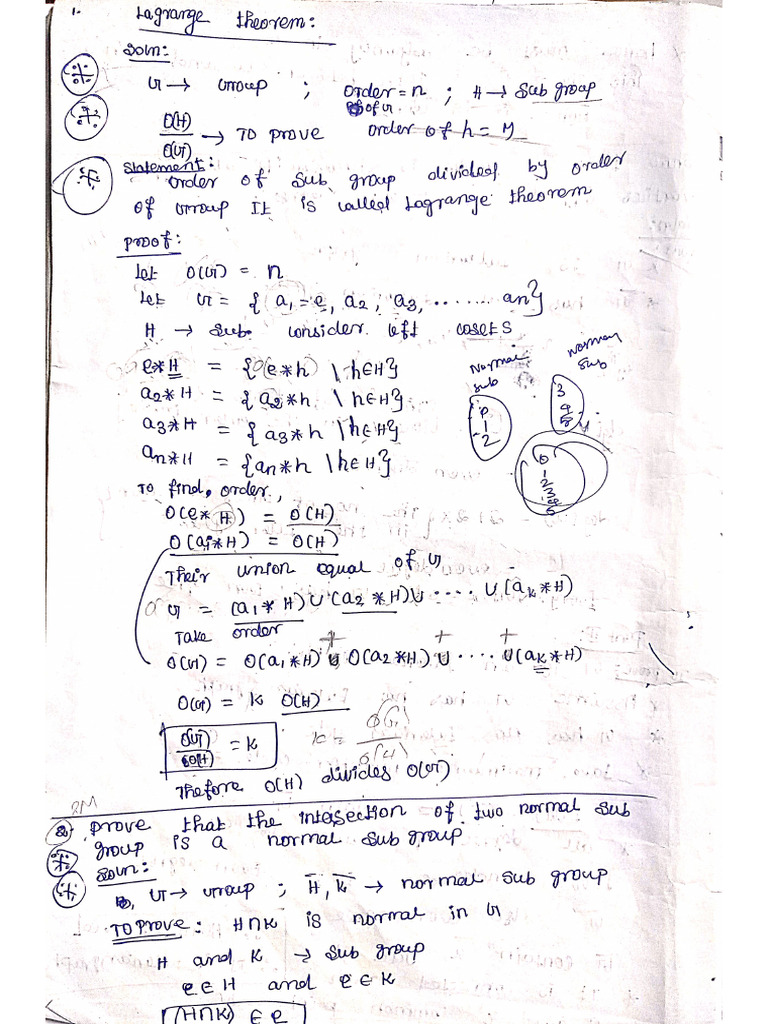 1. Lagrange theorem:
Soln:
G → Group ; order = n ; H → Sub group
of G
O(H)/O(G) → TO PROVE order of h = M
Statement:
order of sub group divided by order
of Group It is called Lagrange theorem
Proof:
let O(G) = n
Let G = { a1 = e, a2, a3, ....... an}
H → Sub. consider left cosets
e*H = {(e*h) \ h∈H}
a2*H = {a2*h \ h∈H}
a3*H = {a3*h \ h∈H}
an*H = {an*h \ h∈H}
Normal sub
e
1
2
Normal sub
3
4
5
0
1
2
3
4
5
To find, order,
O(e*H) = O(H)
O(ai*H) = O(H)
Their union equal of G
G = (a1*H)∪(a2*H)∪.... ∪(ak*H)
Take order
+ + +
O(G) = O(a1*H) ∪ O(a2*H) ∪ ..... ∪(ak*H)
O(G) = k O(H)
O(G)/O(H) = k k = O(G)/O(H)
Therefore O(H) divides O(G)
2M
2) Prove that the intersection of two normal sub
group is a normal sub group
Soln:
G → Group ; H, K → normal sub group
TO PROVE: H∩K is normal in G
H and K → Sub group
e∈H and e∈K
(H∩K) ∈ e